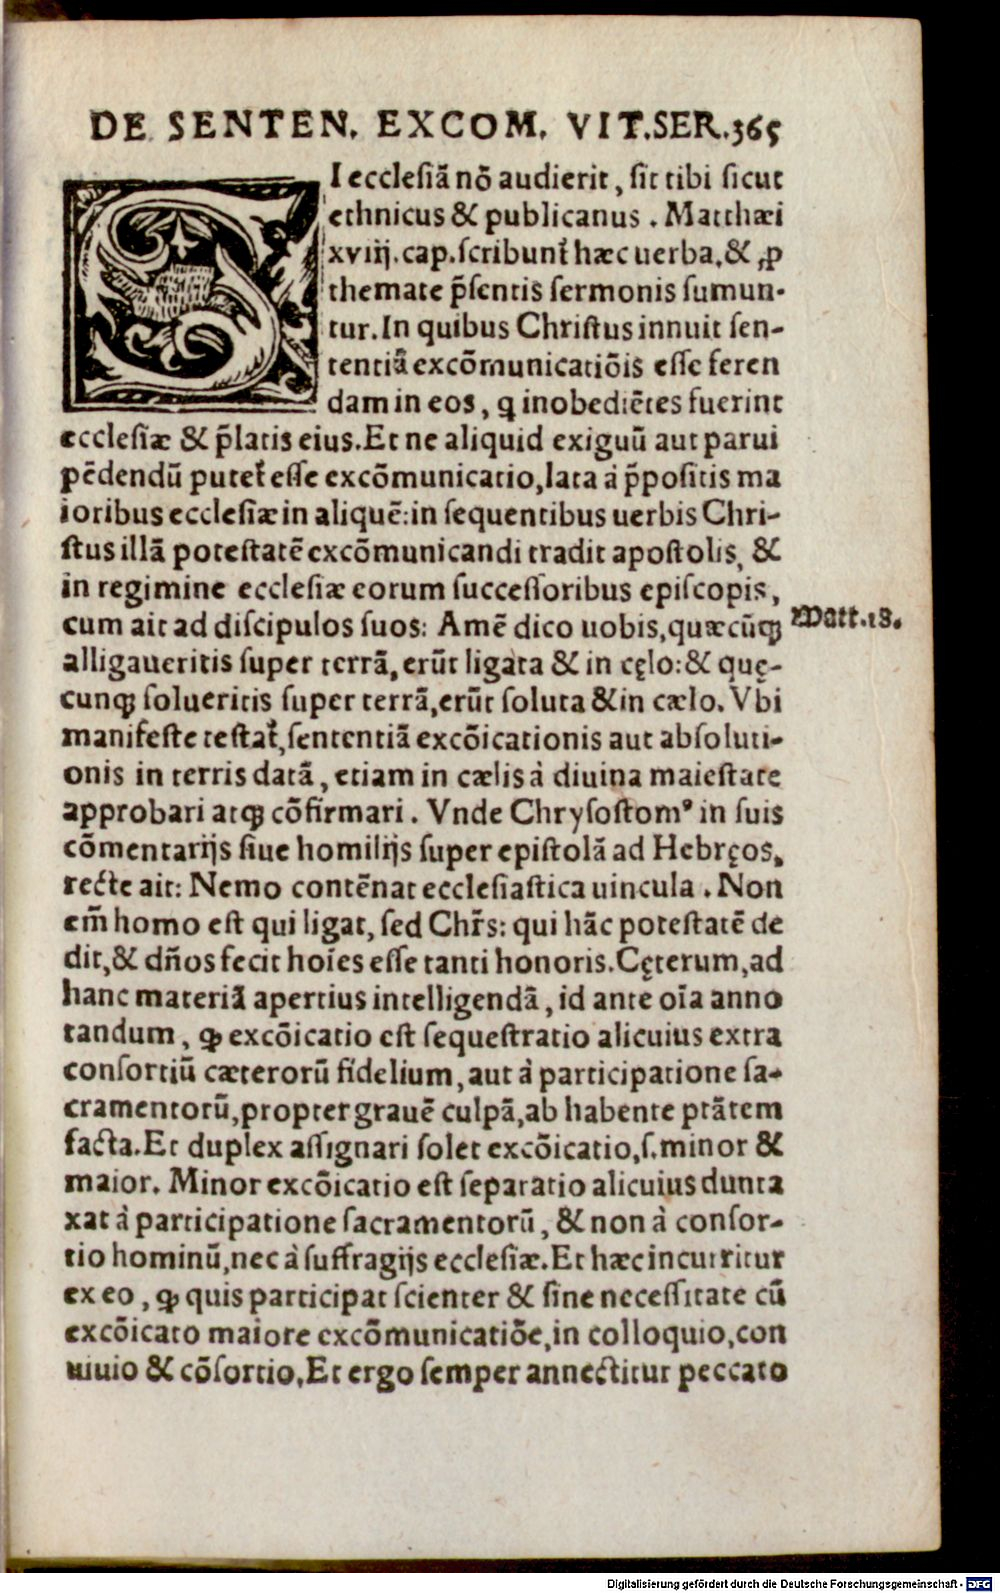 DE SENTEN. EXCOM. VIT.SER.365
SI ecclesiã nõ audierit, sit tibi sicut
ethnicus & publicanus. Matthæi
xviij.cap.scribunt᷑ hæc uerba, & ꝓ
themate p̃sentis sermonis sumun-
tur. In quibus Christus innuit sen-
tentiã excõmunicatiõis esse feren
dam in eos, q inobediẽtes fuerint
ecclesiæ & p̃latis eius. Et ne aliquid exiguũ aut parui
pẽdendũ putet᷑ esse excõmunicatio, lata á p̃positis ma
ioribus ecclesiæ in aliquẽ: in sequentibus uerbis Chri-
stus illã potestatẽ excõmunicandi tradit apostolis, &
in regimine ecclesiæ eorum successoribus episcopis,
cum ait ad discipulos suos: Amẽ dico uobis, quæcũqꝫ
Matt.18.
alligaueritis super terrã, erũt ligata & in cęlo: & quę-
cunqꝫ solueritis super terrã, erũt soluta & in cælo. Vbi
manifeste testat᷑, sententiã excõicationis aut absoluti-
onis in terris datã, etiam in cælis à diuina maiestate
approbari atqꝫ cõfirmari. Vnde Chrysostomꝰ in suis
cõmentarijs siue homilijs super epistolã ad Hebręos,
recte ait: Nemo contẽnat ecclesiastica uincula. Non
em̃ homo est qui ligat, sed Chr̃s: qui hãc potestatẽ de
dit, & dños fecit hoĩes esse tanti honoris. Cęterum, ad
hanc materiã apertius intelligendã, id ante oĩa anno
tandum, ꝙ excõicatio est sequestratio alicuius extra
consortiũ cæterorũ fidelium, aut à participatione sa-
cramentorũ, propter grauẽ culpã, ab habente ptãtem
facta. Et duplex assignari solet excõicatio, s. minor &
maior. Minor excõicatio est separatio alicuius dunta
xat à participatione sacramentorũ, & non à consor-
tio hominũ, nec à suffragijs ecclesiæ. Et hæc incurritur
ex eo, ꝙ quis participat scienter & sine necessitate cũ
excõicato maiore excõmunicatiõe, in colloquio, con
uiuio & cõsortio. Et ergo semper annectitur peccato
Digitalisierung gefördert durch die Deutsche Forschungsgemeinschaft - DFG